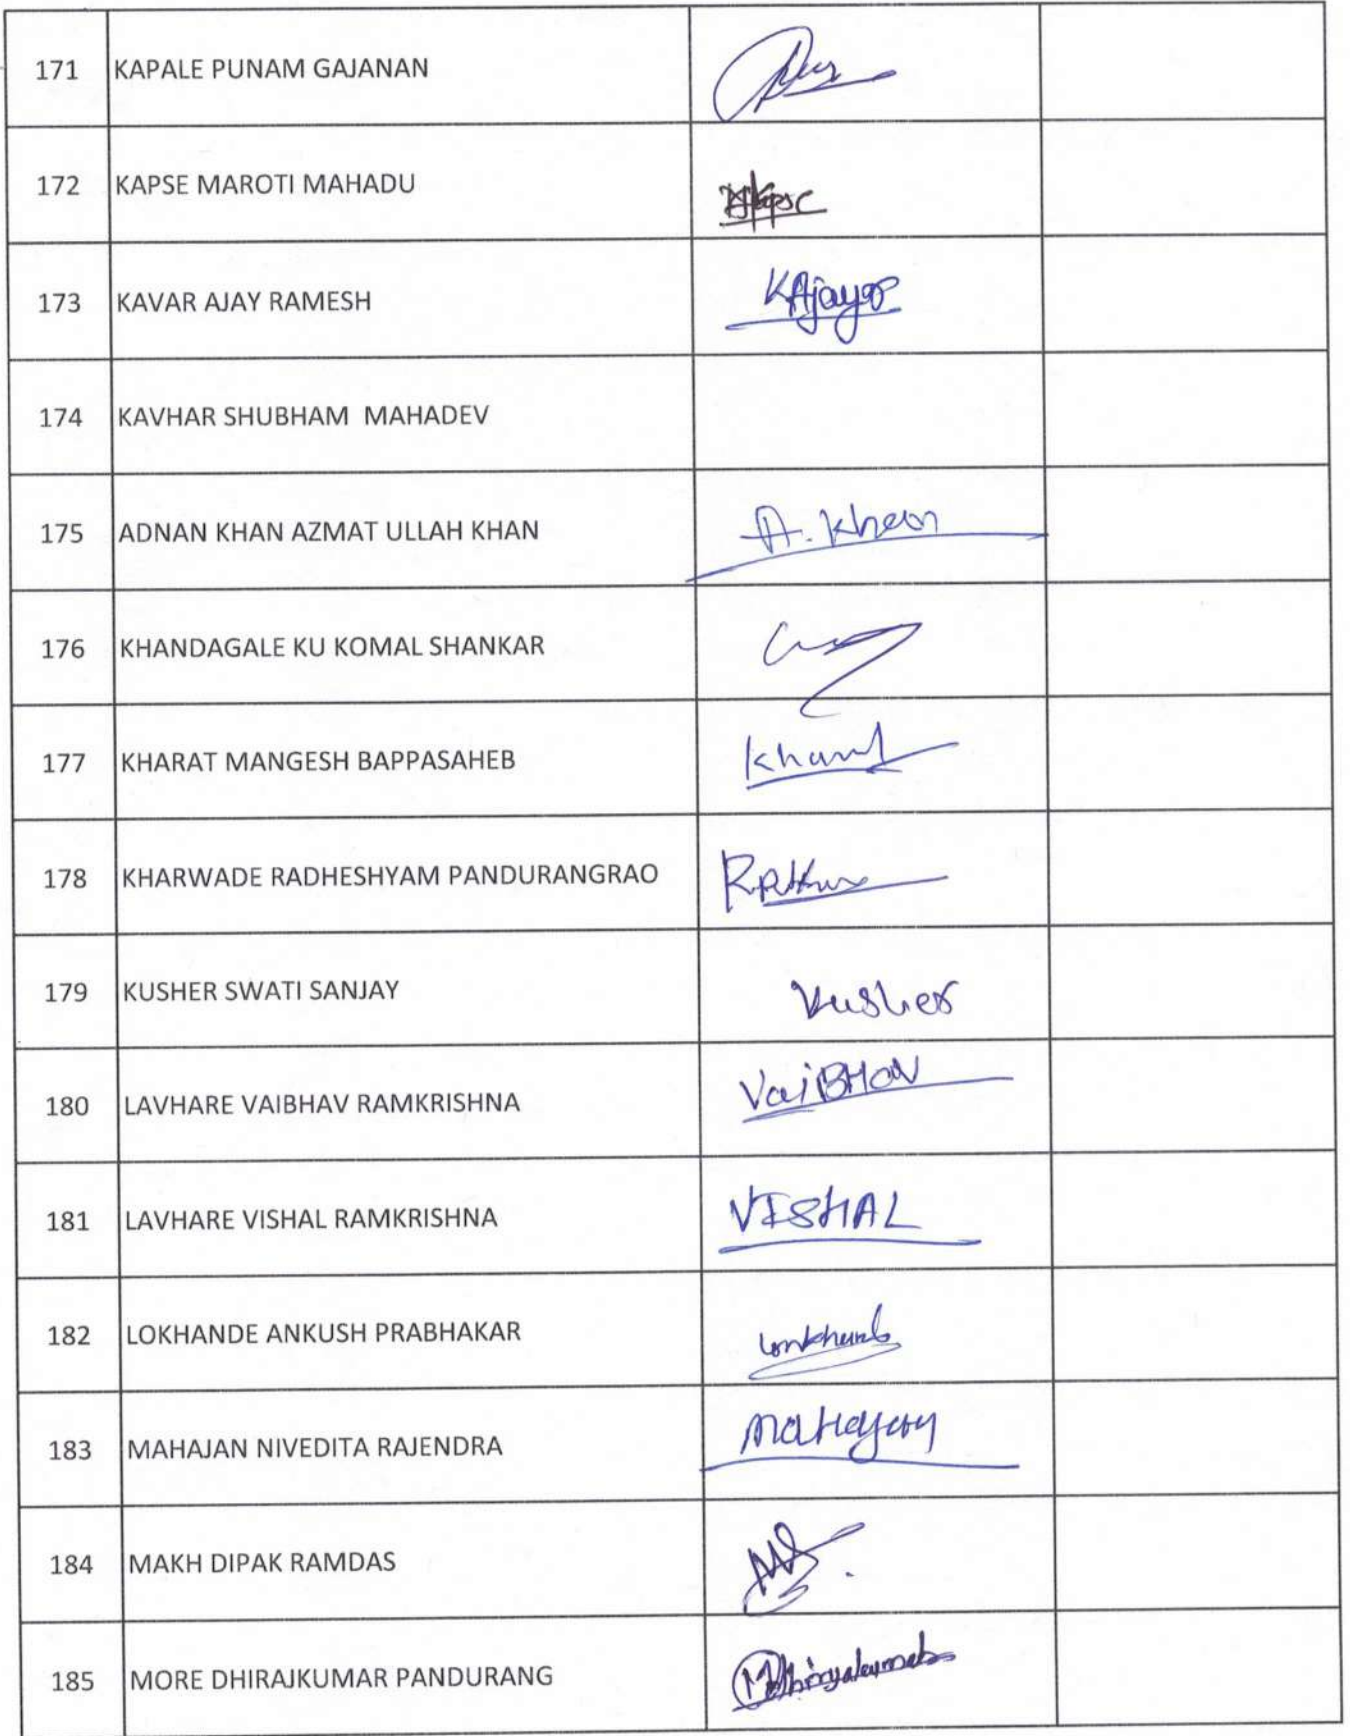 171 KAPALE PUNAM GAJANAN
172 KAPSE MAROTI MAHADU
173 KAVAR AJAY RAMESH KAjay
174 KAVHAR SHUBHAM MAHADEV
175 ADNAN KHAN AZMAT ULLAH KHAN A. Khan
176 KHANDAGALE KU KOMAL SHANKAR
177 KHARAT MANGESH BAPPASAHEB
178 KHARWADE RADHESHYAM PANDURANGRAO
179 KUSHER SWATI SANJAY Kusher
180 LAVHARE VAIBHAV RAMKRISHNA VaiBHav
181 LAVHARE VISHAL RAMKRISHNA VISHAL
182 LOKHANDE ANKUSH PRABHAKAR
183 MAHAJAN NIVEDITA RAJENDRA
184 MAKH DIPAK RAMDAS
185 MORE DHIRAJKUMAR PANDURANG